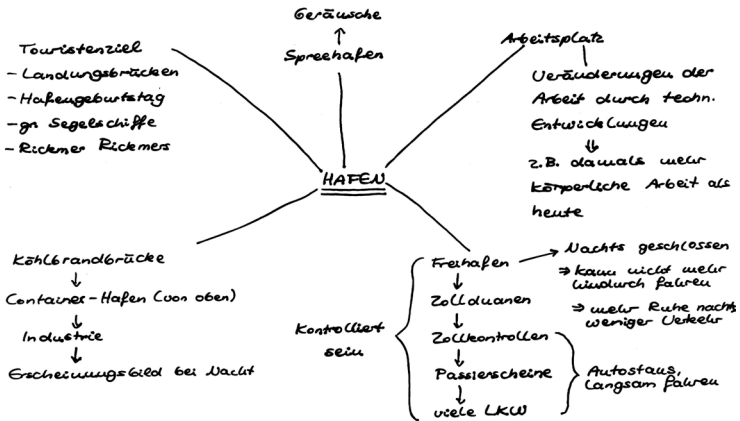 Geräusche
Spreehafen
Touristenziel
- Landungsbrücken
- Hafengeburtstag
- gr Segelschiffe
- Rickmer Rickmers
Arbeitsplatz
Veränderungen der
Arbeit durch techn.
Entwicklungen
z.B. damals mehr
körperliche Arbeit als
heute
HAFEN
Köhlbrandbrücke
Container-Hafen (von oben)
Industrie
Erscheinungsbild bei Nacht
Kontrolliert
sein
Freihafen
Zollduanen
Zollkontrollen
Passierscheine
viele LKW
Nachts geschlossen
⇒ kann nicht mehr
hindurch fahren
⇒ mehr Ruhe nachts
weniger Verkehr
Autostaus,
langsam fahren